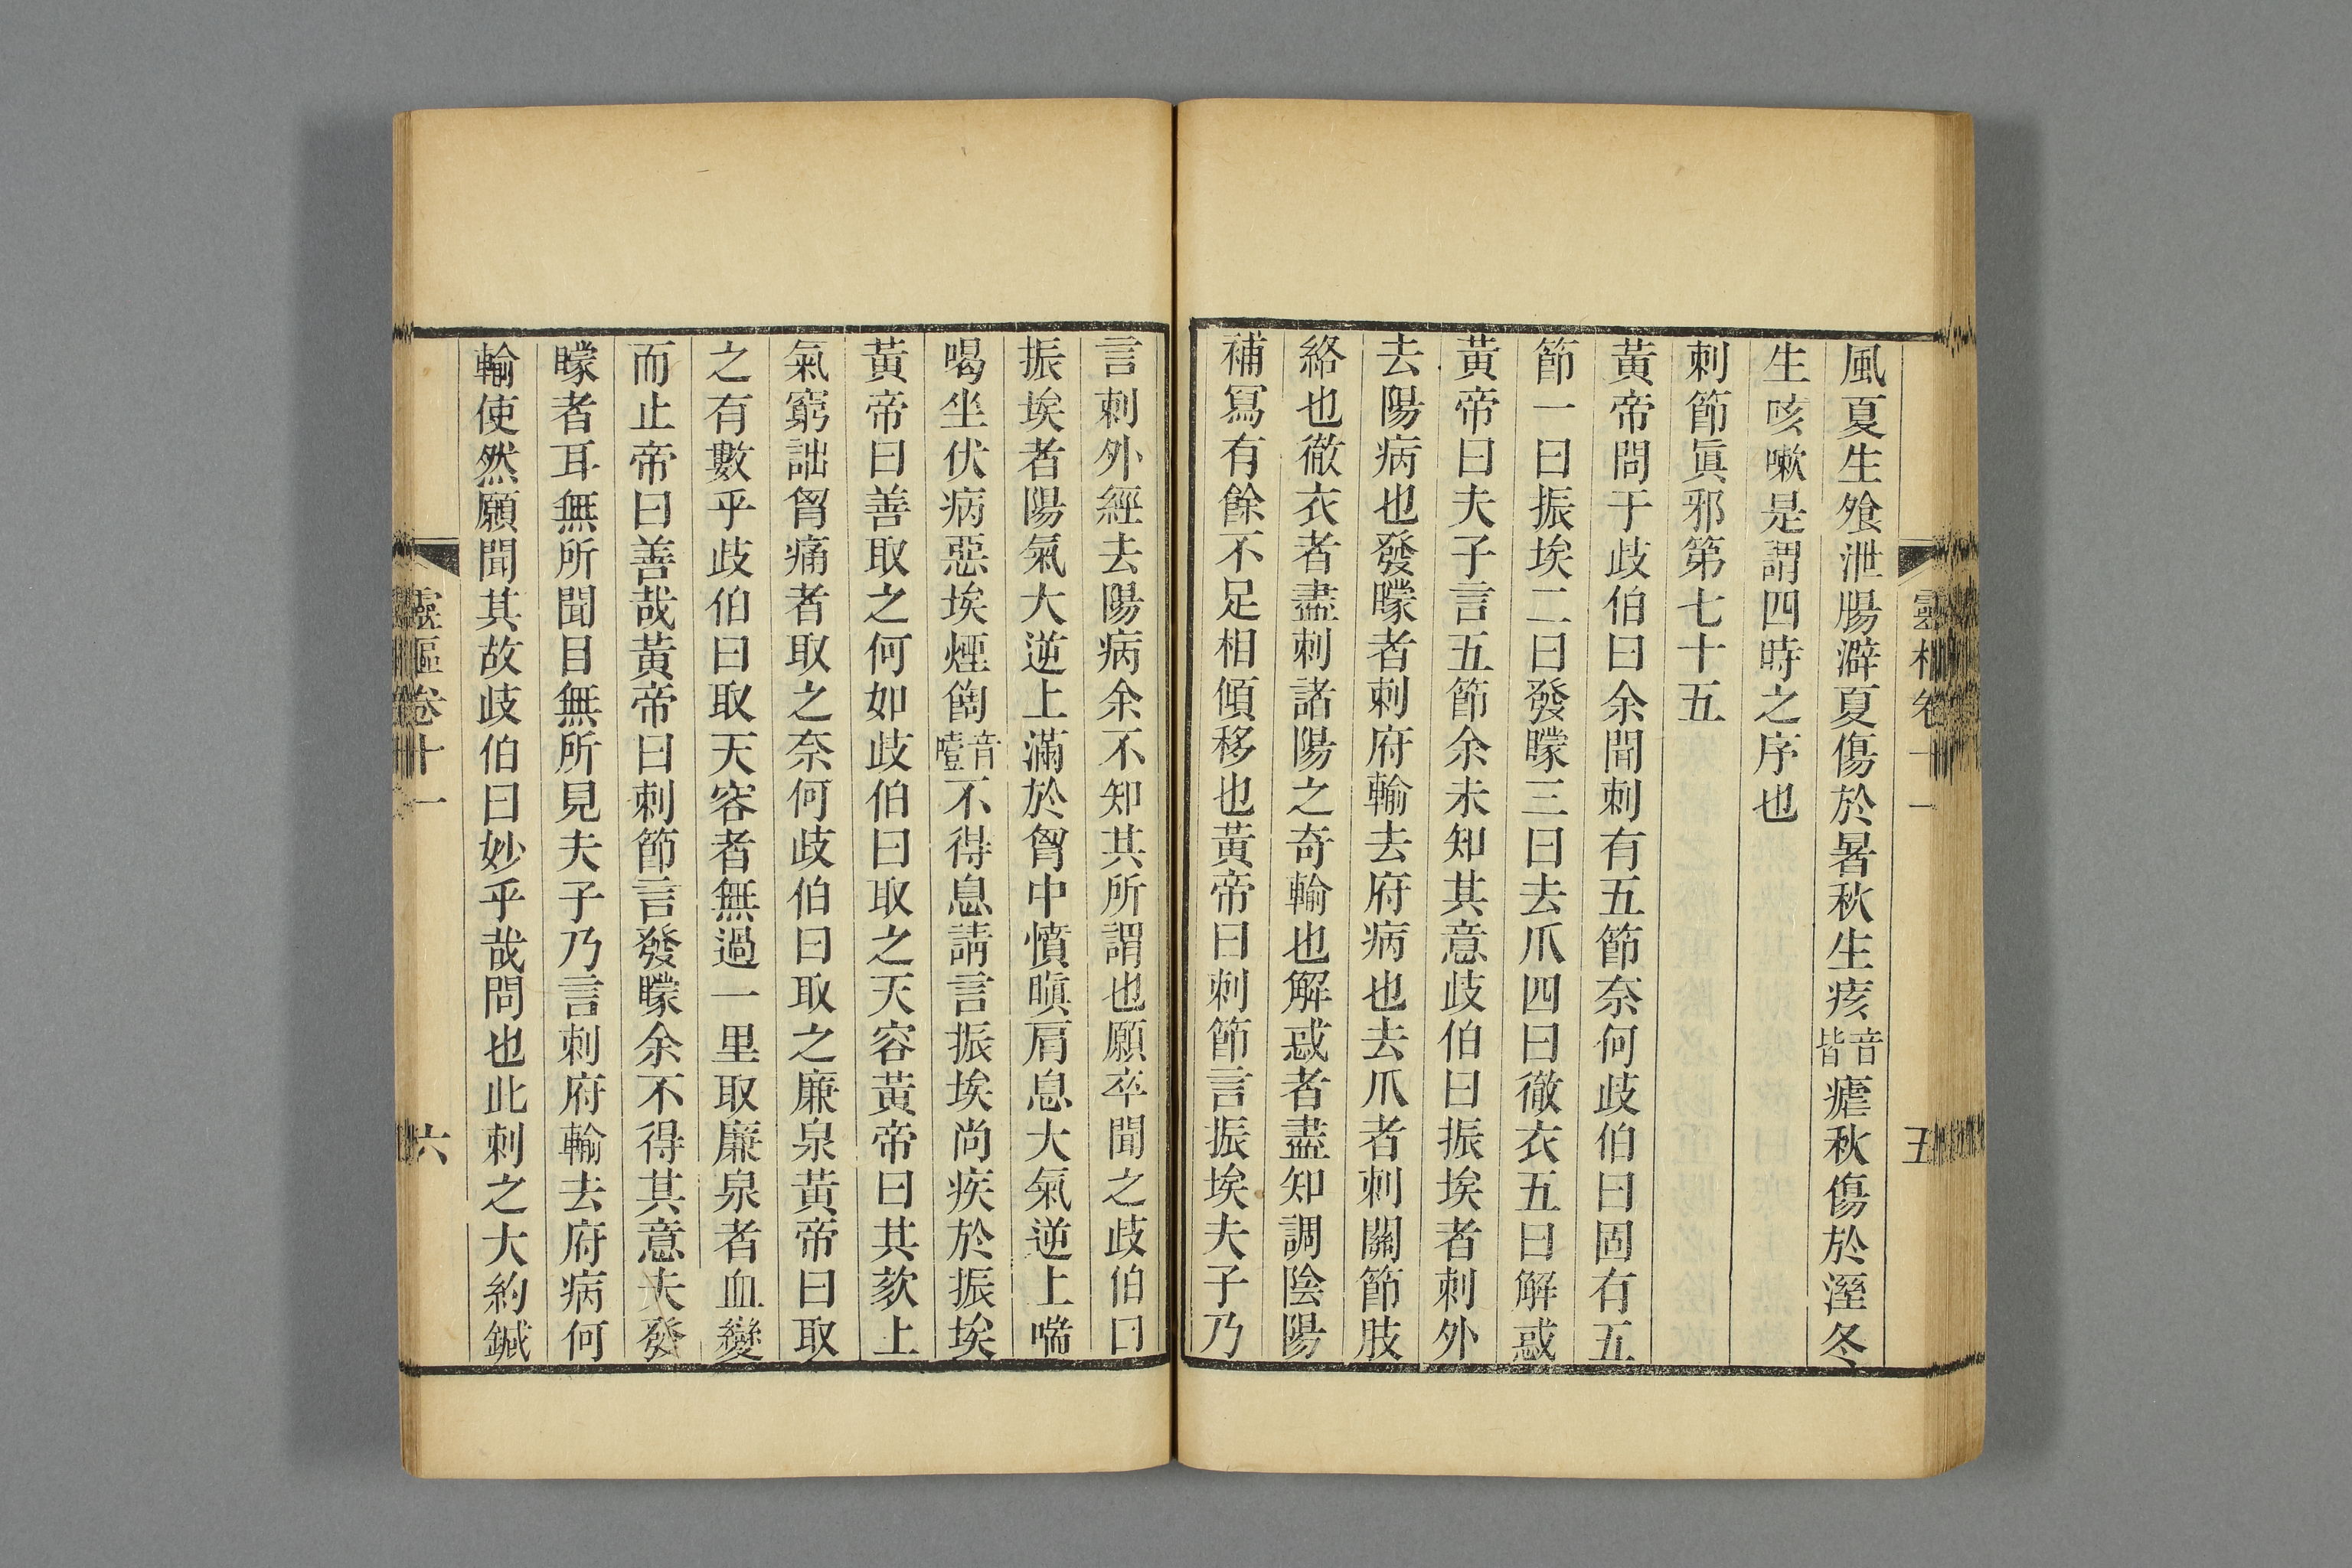 靈樞卷十一 五
風夏生飧泄腸澼夏傷於暑秋生痎音皆瘧秋傷於溼冬
生咳嗽是謂四時之序也
刺節眞邪第七十五
黃帝問于歧伯曰余聞刺有五節奈何歧伯曰固有五
節一曰振埃二曰發矇三曰去爪四曰徹衣五曰解惑
黃帝曰夫子言五節余未知其意歧伯曰振埃者刺外
去陽病也發矇者刺府輸去府病也去爪者刺關節肢
絡也徹衣者盡刺諸陽之奇輸也解惑者盡知調陰陽
補冩有餘不足相傾移也黃帝曰刺節言振埃夫子乃
言刺外經去陽病余不知其所謂也願卒聞之歧伯曰
振埃者陽氣大逆上滿於胷中憤瞋肩息大氣逆上喘
喝坐伏病惡埃煙䭇音噎不得息請言振埃尚疾於振埃
黃帝曰善取之何如歧伯曰取之天容黃帝曰其欬上
氣窮詘胷痛者取之奈何歧伯曰取之廉泉黃帝曰取
之有數乎歧伯曰取天容者無過一里取廉泉者血變
而止帝曰善哉黃帝曰刺節言發矇余不得其意夫發
矇者耳無所聞目無所見夫子乃言刺府輸去府病何
輸使然願聞其故歧伯曰妙乎哉問也此刺之大約鍼
靈樞卷十一 六